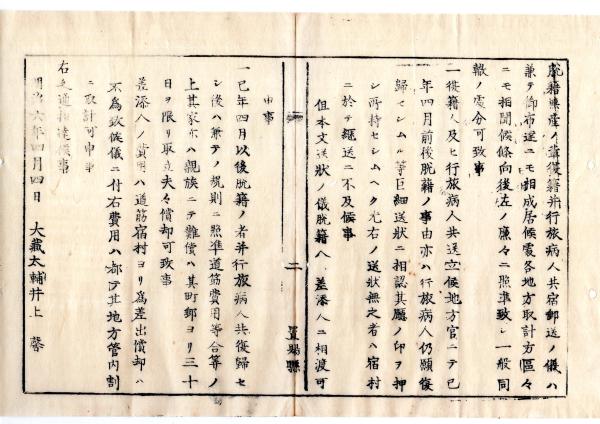 脱籍無産ノ輩復籍并行旅病人共宿郵送ノ儀ハ
兼テ御布達ニモ相成居候處各地方取計方區々
ニモ相聞候條向後左ノ廉々ニ照準致シ一般同
轍ノ處分可致事
一復籍人及ヒ行旅病人共送立候地方官ニテ已
年四月前後脱籍ノ事由亦ハ行旅病人仍願復
歸セシムル等巨細送狀ニ相認其廳ノ印ヲ押
シ所持セシムヘク尤右ノ送狀無之者ハ宿村
ニ於テ繼送ニ不及候事
但本文送狀ノ儀脱籍人ハ差添人ニ相渡可
申事
二
二
置賜縣
一已年四月以後脱籍ノ者并行旅病人共復歸セ
シ後ハ兼テノ規則ニ照準道筋費用等合算ノ
上其家亦ハ親族ニテ難償ハ其町郷ヨリ三十
日ヲ限リ取立夫々償却可致事
差添人ノ費用ハ道筋宿村ヨリ為差出償却ハ
不為致候儀ニ付右費用ハ都テ其地方管內割
ニ取計可申事
右之通相達候事
明治六年四月四日 大藏大輔井上 馨